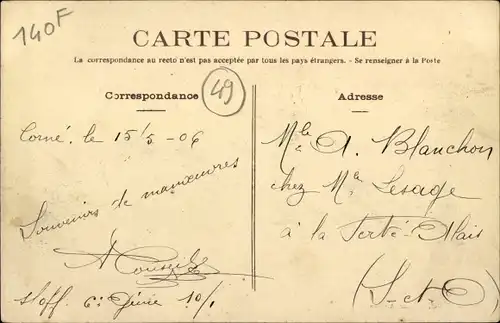 140F
CARTE POSTALE
La correspondance au recto n'est pas acceptée par tous les pays étrangers. - Se renseigner à la Poste
Correspondance
49
Adresse
Corné, le 15/5 - 06
Souvenirs de manœuvres
s/off. 6e Génie 10/1
Mlle A. Blanchon
chez Me Lesage
à la Ferté-Alais
(S-et-O)